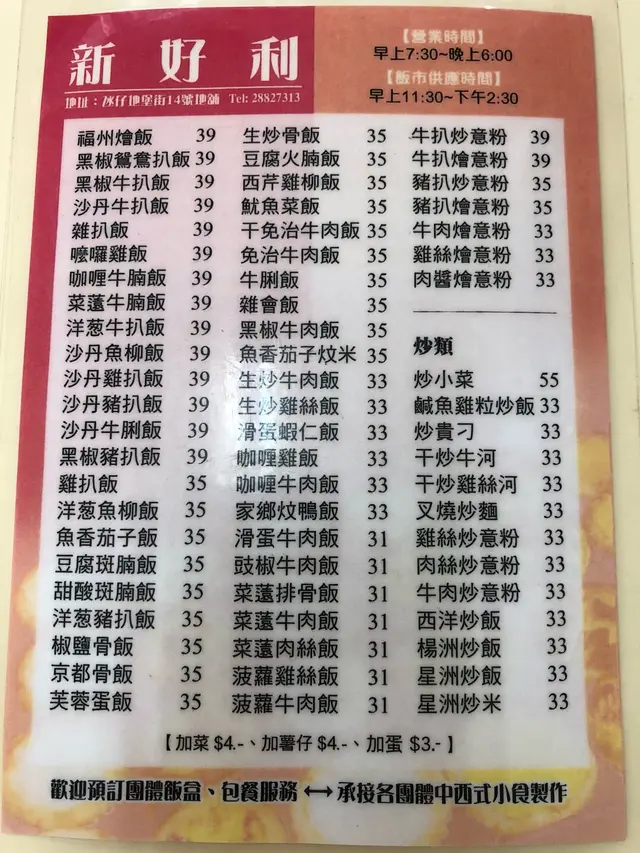 新好利
地址：氹仔地堡街14號地舖 Tel: 28827313
【營業時間】
早上7:30~晚上6:00
【飯市供應時間】
早上11:30~下午2:30
福州燴飯 39
黑椒鴛鴦扒飯 39
黑椒牛扒飯 39
沙丹牛扒飯 39
雜扒飯 39
嚤囉雞飯 39
咖喱牛腩飯 39
菜薳牛腩飯 39
洋葱牛扒飯 39
沙丹魚柳飯 39
沙丹雞扒飯 39
沙丹豬扒飯 39
沙丹牛脷飯 39
黑椒豬扒飯 39
雞扒飯 35
洋葱魚柳飯 35
魚香茄子飯 35
豆腐斑腩飯 35
甜酸斑腩飯 35
洋葱豬扒飯 35
椒鹽骨飯 35
京都骨飯 35
芙蓉蛋飯 35
生炒骨飯 35
豆腐火腩飯 35
西芹雞柳飯 35
魷魚菜飯 35
干免治牛肉飯 35
免治牛肉飯 35
牛脷飯 35
雜會飯 35
黑椒牛肉飯 35
魚香茄子炆米 35
生炒牛肉飯 33
生炒雞絲飯 33
滑蛋蝦仁飯 33
咖喱雞飯 33
咖喱牛肉飯 33
家鄉炆鴨飯 33
滑蛋牛肉飯 31
豉椒牛肉飯 31
菜薳排骨飯 31
菜薳牛肉飯 31
菜薳肉絲飯 31
菠蘿雞絲飯 31
菠蘿牛肉飯 31
牛扒炒意粉 39
牛扒燴意粉 39
豬扒炒意粉 35
豬扒燴意粉 35
牛肉燴意粉 33
雞絲燴意粉 33
肉醬燴意粉 33
炒類
炒小菜 55
鹹魚雞粒炒飯 33
炒貴刁 33
干炒牛河 33
干炒雞絲河 33
叉燒炒麵 33
雞絲炒意粉 33
肉絲炒意粉 33
牛肉炒意粉 33
西洋炒飯 33
楊洲炒飯 33
星洲炒飯 33
星洲炒米 33
【加菜 $4.-、加薯仔 $4.-、加蛋 $3.-】
歡迎預訂團體飯盒、包餐服務 ↔ 承接各團體中西式小食製作